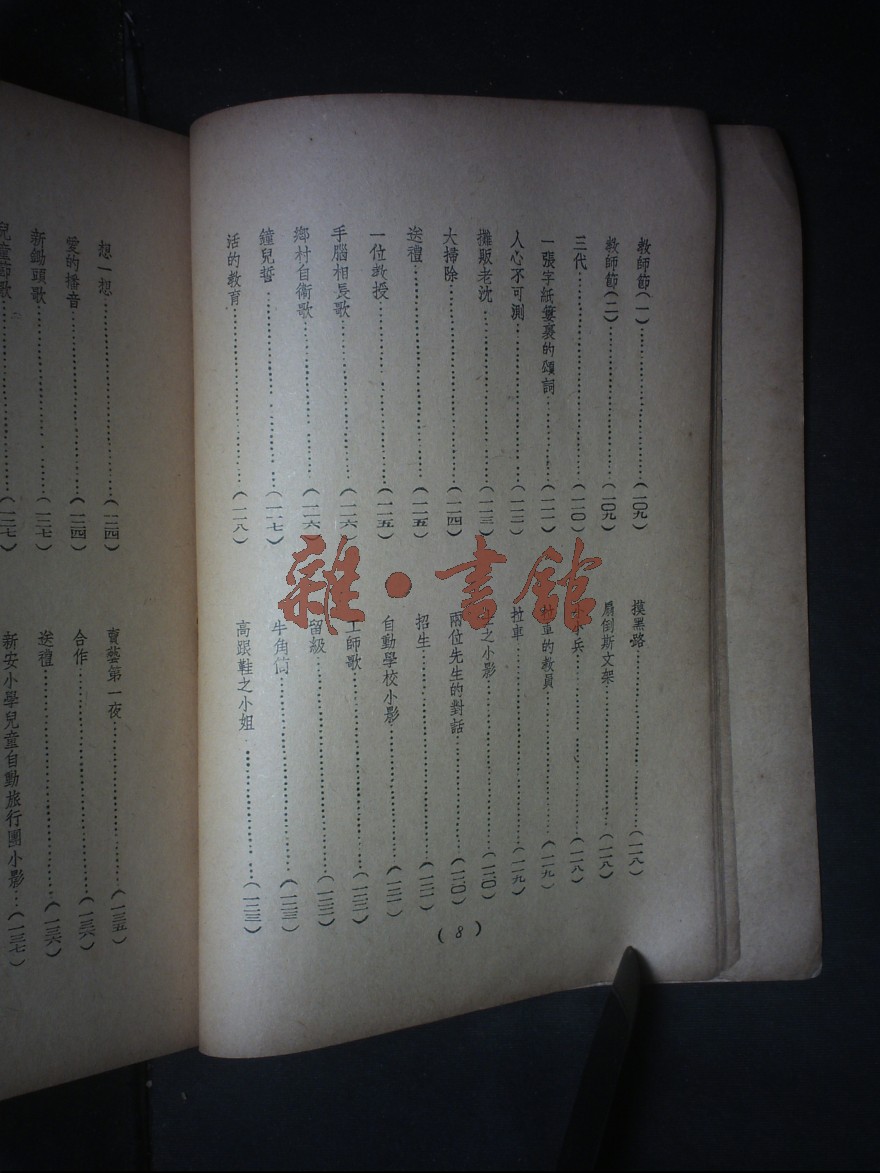 教師節(一)……(一〇九)
教師節(二)……(一〇九)
三代……(一一〇)
一張字紙簍裏的頌詞……(一一一)
人心不可測……(一一二)
攤販老沈……(一一三)
大掃除……(一一四)
送禮……(一一五)
一位教授……(一一五)
手腦相長歌……(一一六)
鄉村自衛歌……(一一六)
鐘兒誓……(一一七)
活的教育……(一一八)
摸黑路……(一一八)
扇倒斯文架……(一一八)
小兵……(一一八)
的教員……(一一九)
拉車……(一一九)
之小影……(一二〇)
兩位先生的對話……(一二〇)
招生……(一二一)
自動學校小影……(一二一)
工師歌……(一二二)
留級……(一二二)
牛角筒……(一二三)
高跟鞋之小姐……(一二三)
(8)
想一想……(一二四)
愛的播音……(一二四)
新鋤頭歌……(一二七)
兒童節歌……(一二七)
賣藝第一夜……(一三五)
合作……(一三六)
送禮……(一三六)
新安小學兒童自動旅行團小影……(一三七)
雜·書館